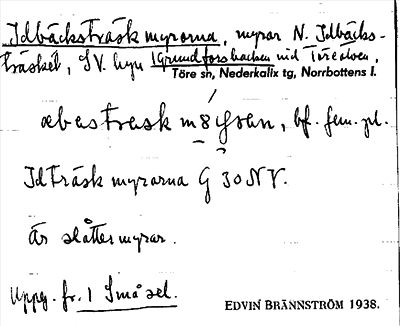 Idbäcksträskmyrorna, myror N. Idbäcks-
träsket, SV. byn Grundforsbacken vid Töreälven,
Töre sn, Nederkalix tg, Norrbottens l.
bf. fem. pl.
Idträskmyrorna G 30 NV.
Är slåttermyror.
Uppg. fr. 1 Småsel.
EDVIN BRÄNNSTRÖM 1938.